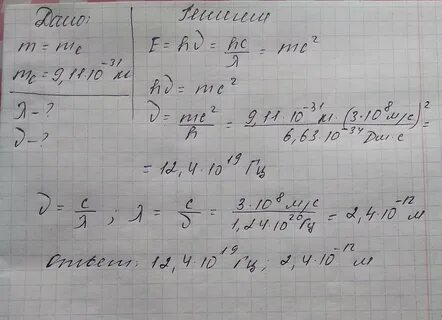 Дано:
m = mc
mc = 9,11·10⁻³¹ кг
λ - ?
ν - ?
Решение
E = hν = hc/λ = mc²
hν = mc²
ν = mc²/h = 9,11·10⁻³¹ кг·(3·10⁸ м/с)²/6,63·10⁻³⁴ Дж·с =
= 12,4·10¹⁹ Гц
ν = c/λ ; λ = c/ν = 3·10⁸ м/с/1,24·10²⁰ Гц = 2,4·10⁻¹² м
Ответ: 12,4·10¹⁹ Гц; 2,4·10⁻¹² м